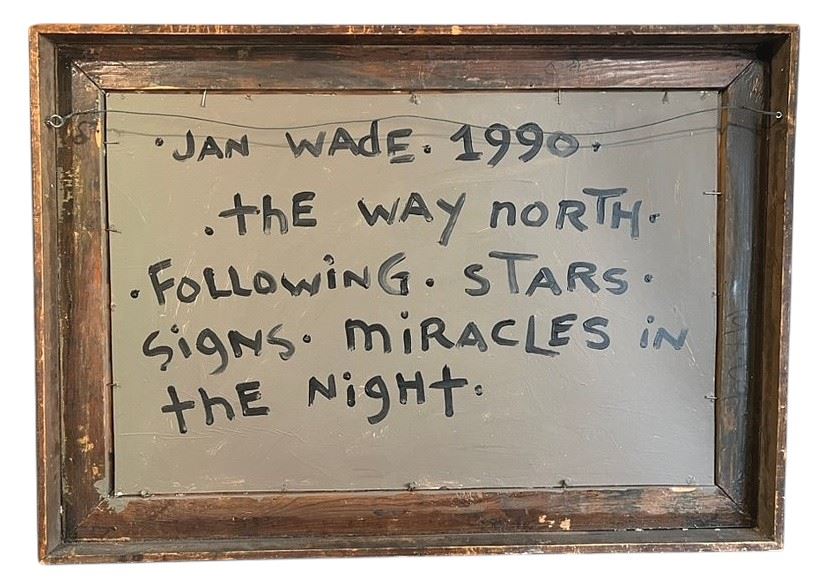 ·JAN WADE. 1990.
.thE WAY NORTH.
.FOLLOWiNG. STARS.
SigNS. MiRACLES iN
thE NigHt.